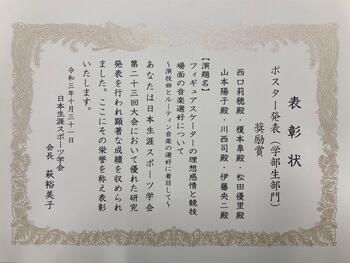 表彰状
ポスター発表(学部生部門)
奨励賞
西口莉穂殿・榎本皐殿・松田優里殿
山本陽子殿・川西司殿・伊藤央二殿
【演題名】
フィギュアスケーターの理想感情と競技
場面の音楽選好について
~演技曲とルーティン音楽の選好に着目して~
あなたは日本生涯スポーツ学会
第二十三回大会において優れた研究
発表を行われ顕著な成績を収められ
ました。ここにその栄誉を称え表彰
いたします。
令和三年十月三十一日
日本生涯スポーツ学会
会長 萩裕美子